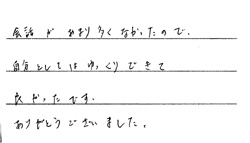 会話があまり多くなかったので、
自分としてはゆっくりできて
良かったです。
ありがとうございました。